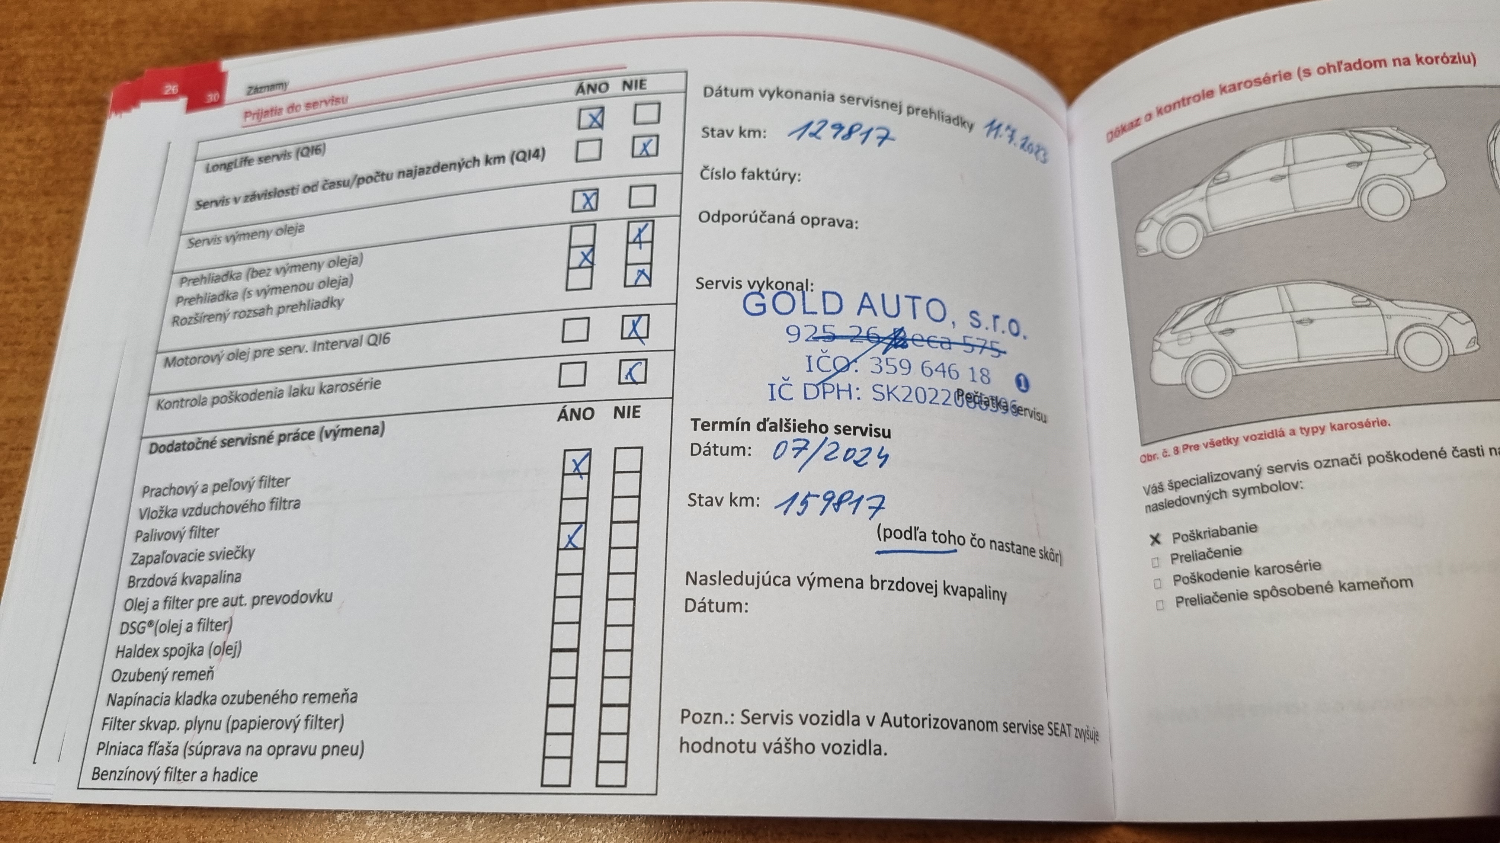 26
30
Záznamy
Prijatia do servisu
ÁNO NIE
LongLife servis (QI6)
Servis v závislosti od času/počtu najazdených km (QI4)
Servis výmeny oleja
Prehliadka (bez výmeny oleja)
Prehliadka (s výmenou oleja)
Rozšírený rozsah prehliadky
Motorový olej pre serv. Interval QI6
Kontrola poškodenia laku karosérie
ÁNO NIE
Dodatočné servisné práce (výmena)
Prachový a peľový filter
Vložka vzduchového filtra
Palivový filter
Zapaľovacie sviečky
Brzdová kvapalina
Olej a filter pre aut. prevodovku
DSG®(olej a filter)
Haldex spojka (olej)
Ozubený remeň
Napínacia kladka ozubeného remeňa
Filter skvap. plynu (papierový filter)
Plniaca fľaša (súprava na opravu pneu)
Benzínový filter a hadice
Dátum vykonania servisnej prehliadky 11.7.2023
Stav km: 129817
Číslo faktúry:
Odporúčaná oprava:
Servis vykonal:
GOLD AUTO, s.r.o.
925 26 Reca 575
IČO: 359 646 18 1
IČ DPH:
Pečiatka servisu
Termín ďalšieho servisu
Dátum: 07/2024
Stav km: 159817
(podľa toho čo nastane skôr)
Nasledujúca výmena brzdovej kvapaliny
Dátum:
Pozn.: Servis vozidla v Autorizovanom servise SEAT zvyšuje
hodnotu vášho vozidla.
Dôkaz o kontrole karosérie (s ohľadom na koróziu)
Obr. č. 8 Pre všetky vozidlá a typy karosérie.
Váš špecializovaný servis označí poškodené časti
nasledovných symbolov:
Poškriabanie
Preliačenie
Poškodenie karosérie
Preliačenie spôsobené kameňom